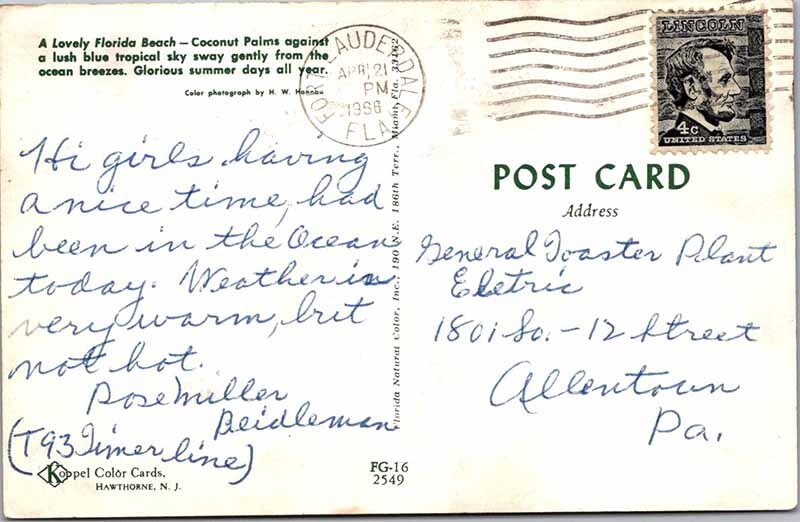 A Lovely Florida Beach — Coconut Palms against
a lush blue tropical sky sway gently from the
ocean breezes. Glorious summer days all year.
Color photograph by H. W. Hannau
Hi girls, having
a nice time, had
been in the Ocean
today. Weather is
very warm, but
not hot.
Rose Miller
Beidleman
(T93 Timer line)
Koppel Color Cards,
HAWTHORNE, N. J.
Florida Natural Color, Inc., 190 N.E. 186th Terr., Miami, Fla. 33162
FG-16
2549
FORT LAUDERDALE
APR 21
PM
1966
FLA
LINCOLN
4c
UNITED STATES
POST CARD
Address
General Toaster Plant
Eletric
1801 So. - 12 Street
Allentown
Pa.